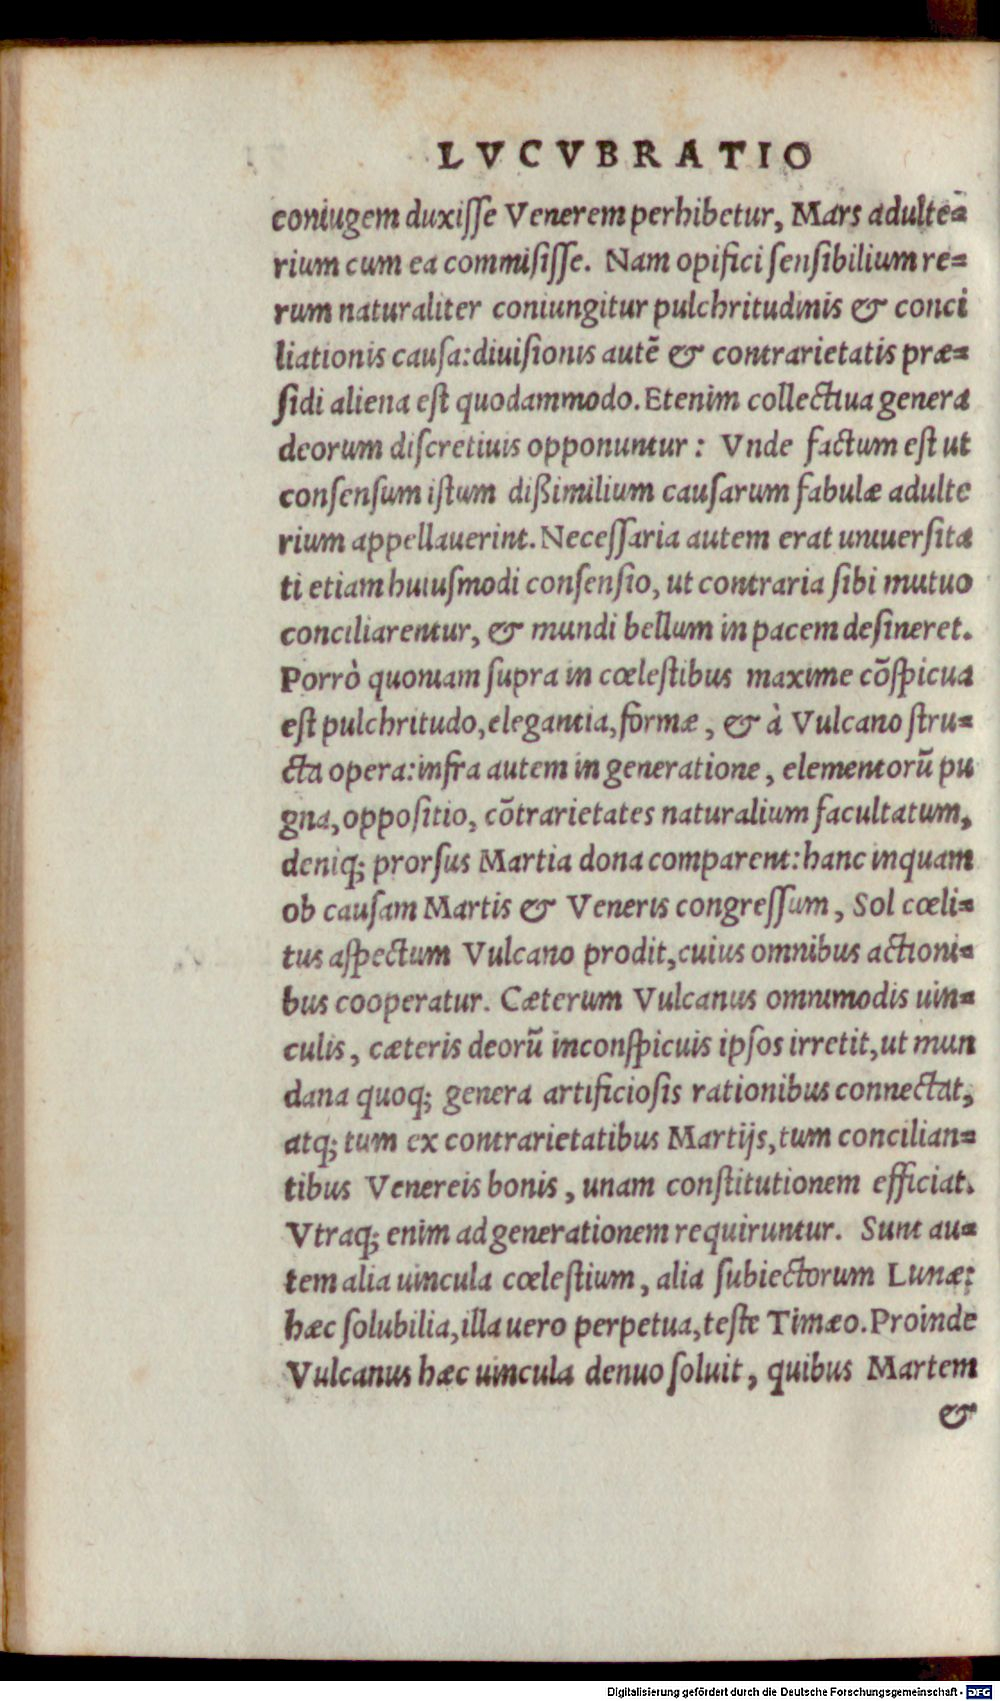 LVCVBRATIO
coniugem duxiſſe Venerem perhibetur, Mars adulte=
rium cum ea commiſiſſe. Nam opifici ſenſibilium re=
rum naturaliter coniungitur pulchritudinis & conci
liationis cauſa: diuiſionis autē & contrarietatis præ=
ſidi aliena eſt quodammodo. Etenim collectiua genera
deorum diſcretiuis opponuntur: Vnde factum eſt ut
conſenſum iſtum dißimilium cauſarum fabulæ adulte
rium appellauerint. Neceſſaria autem erat uniuerſita
ti etiam huiuſmodi conſenſio, ut contraria ſibi mutuo
conciliarentur, & mundi bellum in pacem deſineret.
Porrò quoniam ſupra in cœleſtibus maxime cōſpicua
eſt pulchritudo, elegantia, formæ, & à Vulcano ſtru=
cta opera: infra autem in generatione, elementorū pu
gna, oppoſitio, cōtrarietates naturalium facultatum,
deniq; prorſus Martia dona comparent: hanc inquam
ob cauſam Martis & Veneris congreſſum, Sol cœli=
tus aſpectum Vulcano prodit, cuius omnibus actioni=
bus cooperatur. Cæterum Vulcanus omnimodis uin=
culis, cæteris deorū inconſpicuis ipſos irretit, ut mun
dana quoq; genera artificioſis rationibus connectat,
atq; tum ex contrarietatibus Martijs, tum concilian=
tibus Venereis bonis, unam conſtitutionem efficiat.
Vtraq; enim ad generationem requiruntur. Sunt au=
tem alia uincula cœleſtium, alia ſubiectorum Lunæ:
hæc ſolubilia, illa uero perpetua, teſte Timæo. Proinde
Vulcanus hæc uincula denuo ſoluit, quibus Martem
&
Digitalisierung gefördert durch die Deutsche Forschungsgemeinschaft - DFG